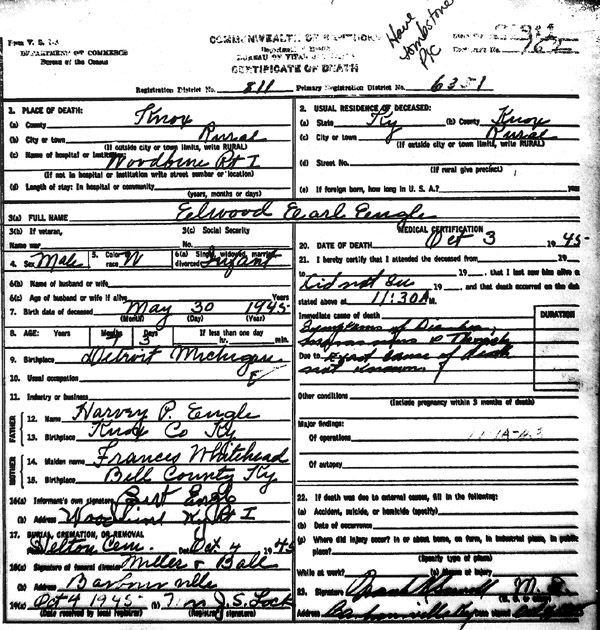 Have
tombstone
Pic
Form V. S. 1-A
DEPARTMENT OF COMMERCE
Bureau of the Census
COMMONWEALTH OF KENTUCKY
Department of Health
BUREAU OF VITAL STATISTICS
CERTIFICATE OF DEATH
Registration District No. 811
Primary Registration District No. 6351
1. PLACE OF DEATH:
(a) County Knox
(b) City or town Rural
(If outside city or town limits, write RURAL)
(c) Name of hospital or institution: Woodbine Rt I
(If not in hospital or institution write street number or location)
(d) Length of stay: In hospital or community
(years, months or days)
2. USUAL RESIDENCE OF DECEASED:
(a) State Ky (b) County Knox
(c) City or town Rural
(If outside city or town limits, write RURAL)
(d) Street No.
(If rural give precinct)
(e) If foreign born, how long in U. S. A.? years
3(a) FULL NAME Elwood Earl Engle
3(b) If veteran,
Name war
3(c) Social Security
No.
4. Sex Male 5. Color or race W 6(a) Single, widowed, married, divorced Infant
6(b) Name of husband or wife
6(c) Age of husband or wife if alive Years
7. Birth date of deceased May 30 1945
(Month) (Day) (Year)
8. AGE: Years Months Days If less than one day
3 hr. min.
9. Birthplace Detroit Michigan
10. Usual occupation
11. Industry or business
FATHER
12. Name Harvey P. Engle
13. Birthplace Knox Co Ky
MOTHER
14. Maiden name Frances Whitehead
15. Birthplace Bell County Ky
16(a) Informant's own signature Engle
(b) Address Woodbine Ky Rt I
17. BURIAL, CREMATION, OR REMOVAL
Cem. Date Oct 4 1945
18(a) Signature of funeral director Miller & Ball
(b) Address Barbourville
19(a) Oct 4 1945 (b) J. S. Lock
(Date received by local registrar) (Registrar's signature)
MEDICAL CERTIFICATION
20. DATE OF DEATH Oct 3 1945
21. I hereby certify that I attended the deceased from 19
19 that I last saw him alive on
Did not See 19 and that death occurred on the date
stated above at 11:30 A M.
DURATION
Immediate cause of death
Symptoms of
Due to Exact cause of death
not known
Other conditions
(Include pregnancy within 3 months of death)
Major findings:
Of operations
Of autopsy
22. If death was due to external causes, fill in the following:
(a) Accident, suicide, or homicide (specify)
(b) Date of occurrence
(c) Where did injury occur? in or about home, on farm, in industrial place, in public
place?
(Specify type of place)
While at work? (e) Means of injury
23. Signature M. D.
Address Barbourville Ky Date signed